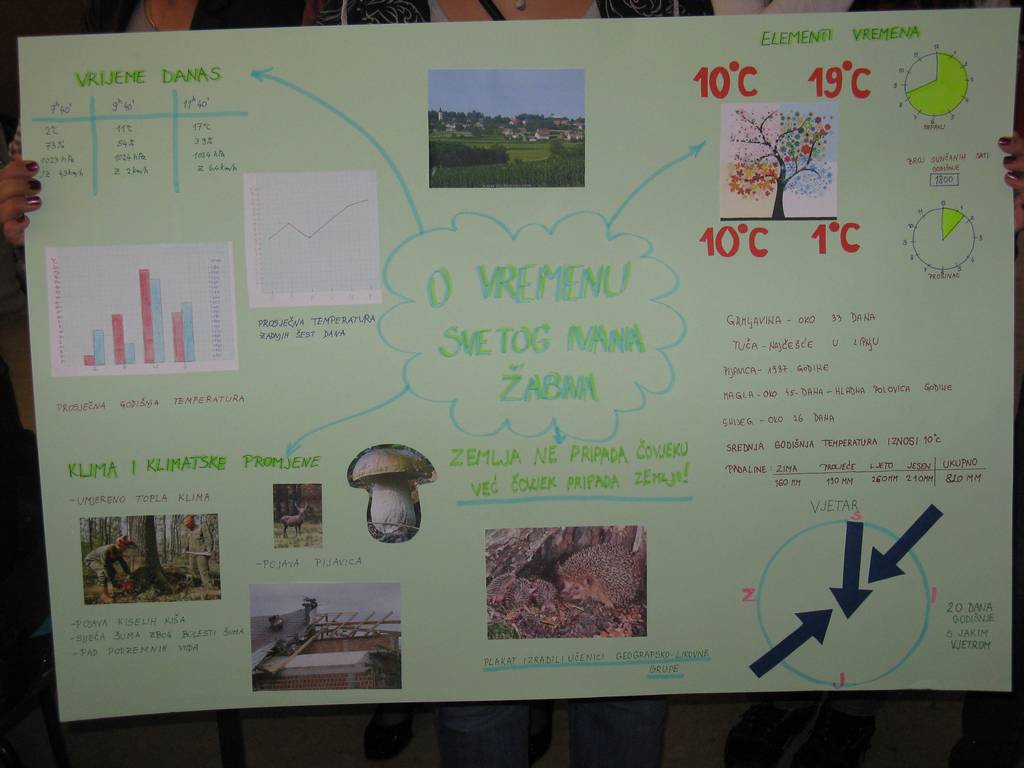 VRIJEME DANAS
7ʰ 40' 9ʰ 40' 11ʰ 40'
2°C 11°C 17°C
73% 54% 39%
1023 hPa 1024 hPa 1024 hPa
Z 2km/h
PROSJEČNA TEMPERATURA
ZADNJIH ŠEST DANA
PROSJEČNA GODIŠNJA TEMPERATURA
O VREMENU
SVETOG IVANA
ŽABNA
ELEMENTI VREMENA
10°C 19°C
10°C 1°C
SRPANJ
BROJ SUNČANIH SATI
GODIŠNJE
1800
PROSINAC
GRMLJAVINA - OKO 33 DANA
TUČA - NAJČEŠĆE U LIPNJU
PIJAVICA - 1987. GODINE
MAGLA - OKO 45 DANA - HLADNA POLOVICA GODINE
SNIJEG - OKO 26 DANA
SREDNJA GODIŠNJA TEMPERATURA IZNOSI 10°C
PADALINE: ZIMA PROLJEĆE LJETO JESEN UKUPNO
160 MM 190 MM 260 MM 210 MM 820 MM
VJETAR
S
Z I
J
20 DANA
GODIŠNJE
S JAKIM
VJETROM
KLIMA I KLIMATSKE PROMJENE
- UMJERENO TOPLA KLIMA
- POJAVA PIJAVICA
- POJAVA KISELIH KIŠA
- SJEČA ŠUMA ZBOG BOLESTI ŠUMA
- PAD PODZEMNIH VODA
ZEMLJA NE PRIPADA ČOVJEKU
VEĆ ČOVJEK PRIPADA ZEMLJI!
PLAKAT IZRADILI UČENICI GEOGRAFSKO-LIKOVNE
GRUPE